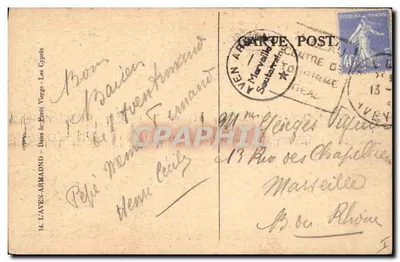 14. L'AVEN-ARMAND - Dans la Forêt Vierge - Les Cyprès
CARTE POSTALE
AVEN ARMAND
Merveille
Souterraine
CENTRE DE
TOURISME
13
40
Bons
Baisers
d'Aven Armand
Fernand
Pépé
Henri Cécile
Mme Georges
13 Rue des Chapeliers
Marseille
B du Rhône